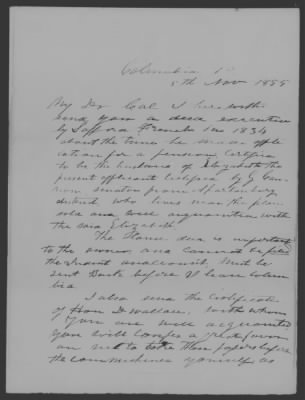 Columbia
5th Nov 1855
My Dr Col I herewith
send you a deed executed
by Safford French in 1834
about the time he made appli
cation for a pension Certified
to be the husband of Elizabeth the
present applicant Certified by J
senator from Spartanburg
district who lives near the place
and well acquainted with
the said Elizabeth
The deed is important
to the owner and cannot
the must be
sent back before I leave Colum
bia
I also send the Certificate
of Hon D Wallace with whom
you are well acquainted
you will confer a great favor
on me to take these papers before
the commissioner yourself as